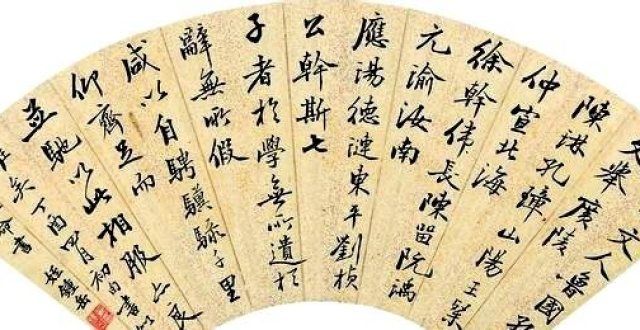 文人魯國孔
文舉廣陵
陳琳孔璋山陽王粲
仲宣北海
徐幹偉長陳留阮瑀
元渝汝南
應湯德漣東平劉楨
公幹斯七
子者於學無所遺於
辭無所假
咸以自騁驥騄千里
仰齊足而
並馳以此相服亦良
矣丁酉四月初旬書
命書
鍾岳